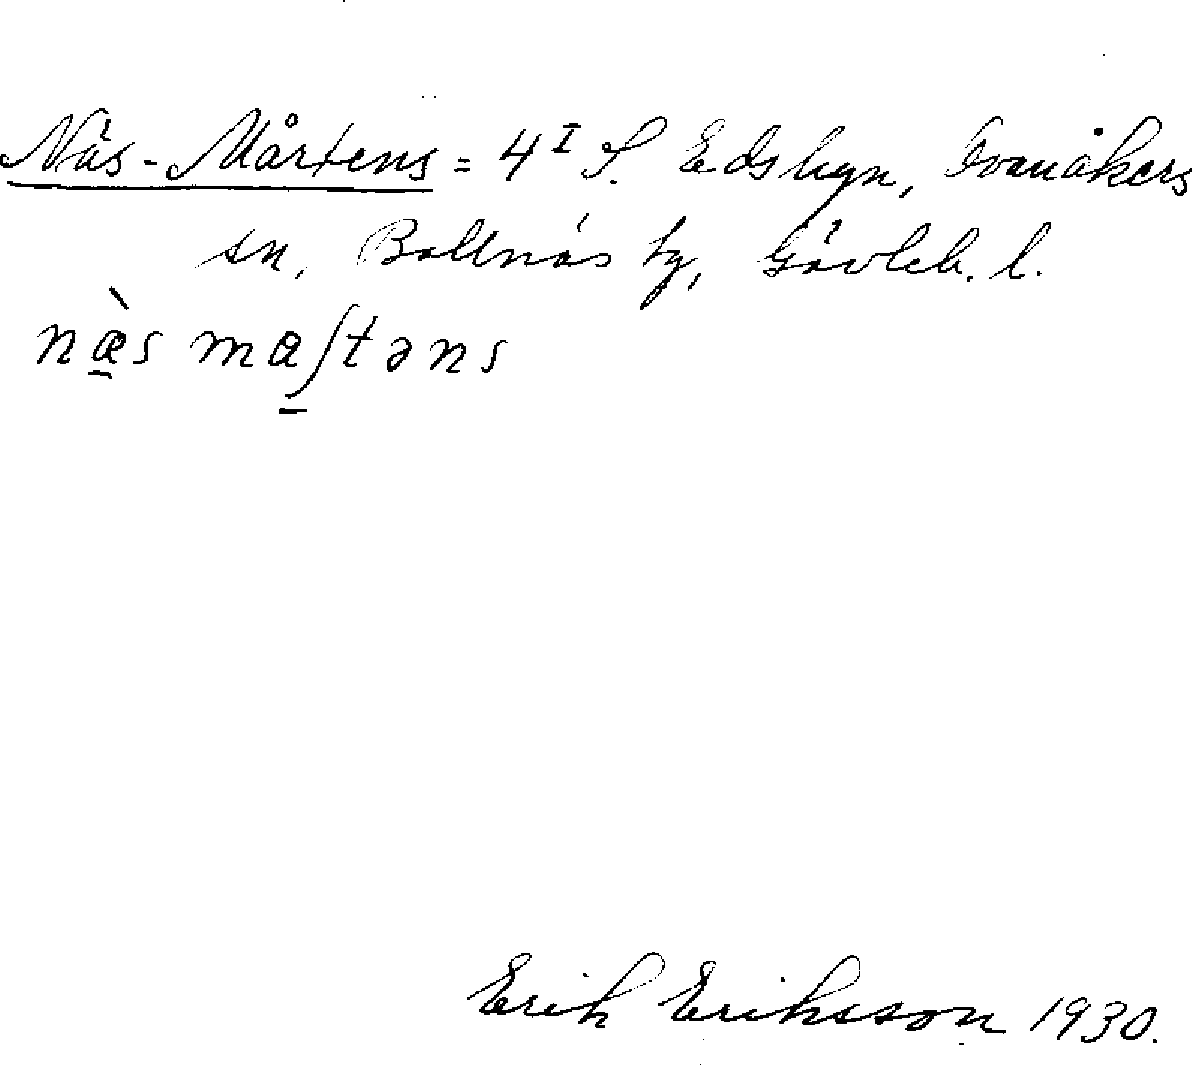 Näs-Mårtens = 4^I S. Edsbyn, Ovanåkers
sn, Bollnäs tg, Gävleb. l.
næ̀s maʃtəns
Erik Eriksson 1930.